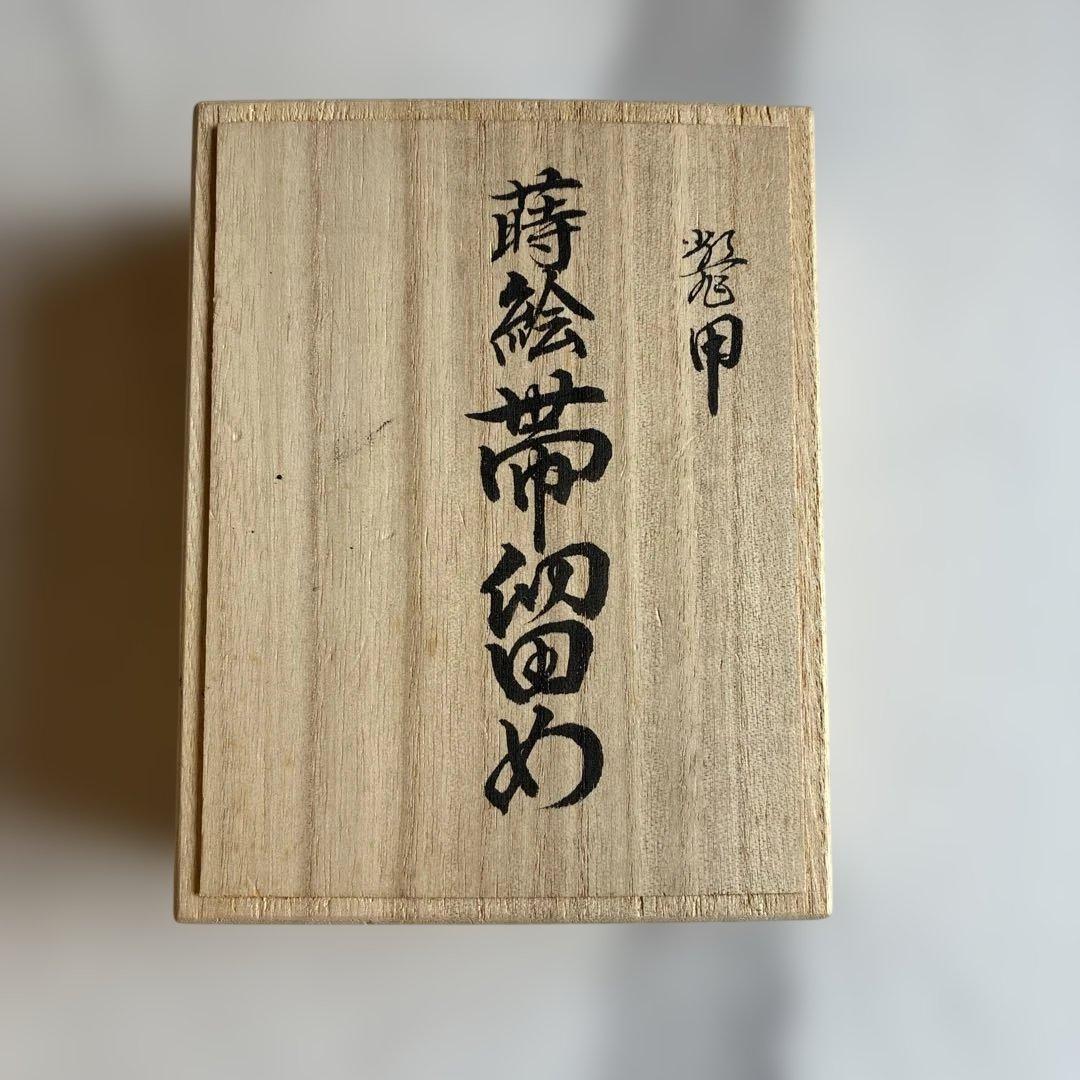 鼈甲
蒔絵帯留め